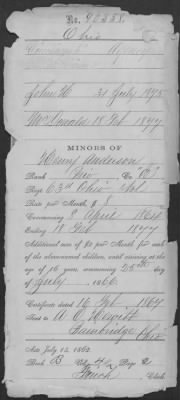 No. 90338.
Ohio
John H 31 July 1875
McDonald 18 Feb 1877
MINORS OF
Henry Anderson
Rank Priv Co. "B"
Regt 63rd Ohio Vol.
Rate per Month, $ 8
Commencing 8 April 1864
Ending 18 Feb 1877
Additional sum of $2 per month for each
of the above-named children, until arriving at the
age of 16 years, commencing 25th day
of July, 1866.
Certificate dated 16 Feb 1867
Sent to A. C. Hewitt
Bainbridge Ohio
Act July 14, 1862.
Book B Vol. Page 2
Clerk